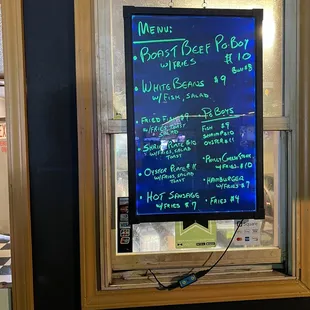 MENU:
• ROAST BEEF PO-BOY
W/FRIES $10
• WHITE BEANS $9
W/ FISH, SALAD
• FRIED FISH $9
W/FRIES, TOAST
SALAD
• SHRIMP PLATE $10
W/FRIES, SALAD
TOAST
• OYSTER PLATE $11
W/FRIES, SALAD
TOAST
• HOT SAUSAGE
W/FRIES $7
PO BOYS
FISH $9
SHRIMP $10
OYSTER $11
• PHILLY CHEESE STEAK
W/FRIES $10
• HAMBURGER
W/FRIES $7
• FRIES $4